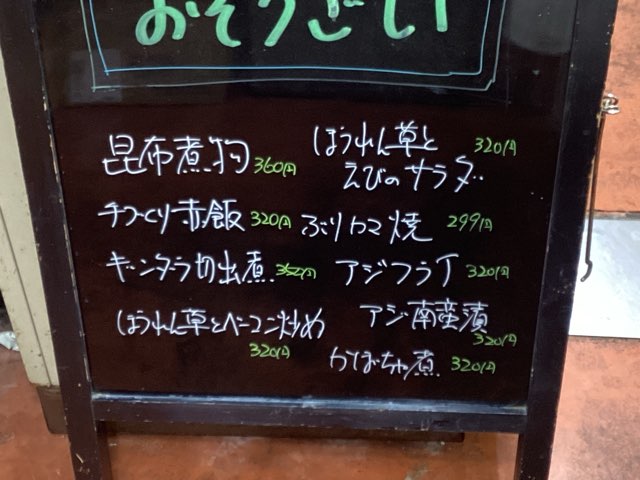 おそうざい
昆布煮物 360円
手づくり赤飯 320円
キンダラ切出煮
ほうれん草とベーコン炒め
320円
ほうれん草と 320円
えびのサラダ
ぶりカマ焼 299円
アジフライ 320円
アジ南蛮漬
320円
かぼちゃ煮 320円